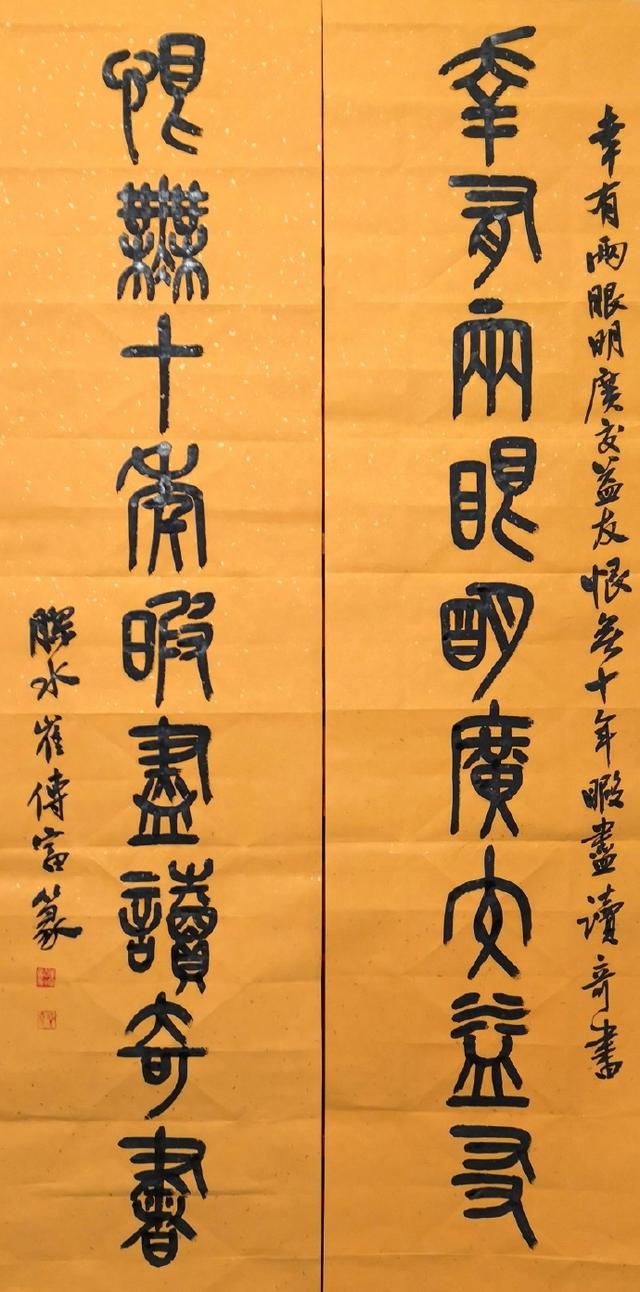 幸有兩眼明廣交益友恨無十年暇盡讀奇書
幸有兩眼明廣交益友
恨無十年暇盡讀奇書
崔傳富篆